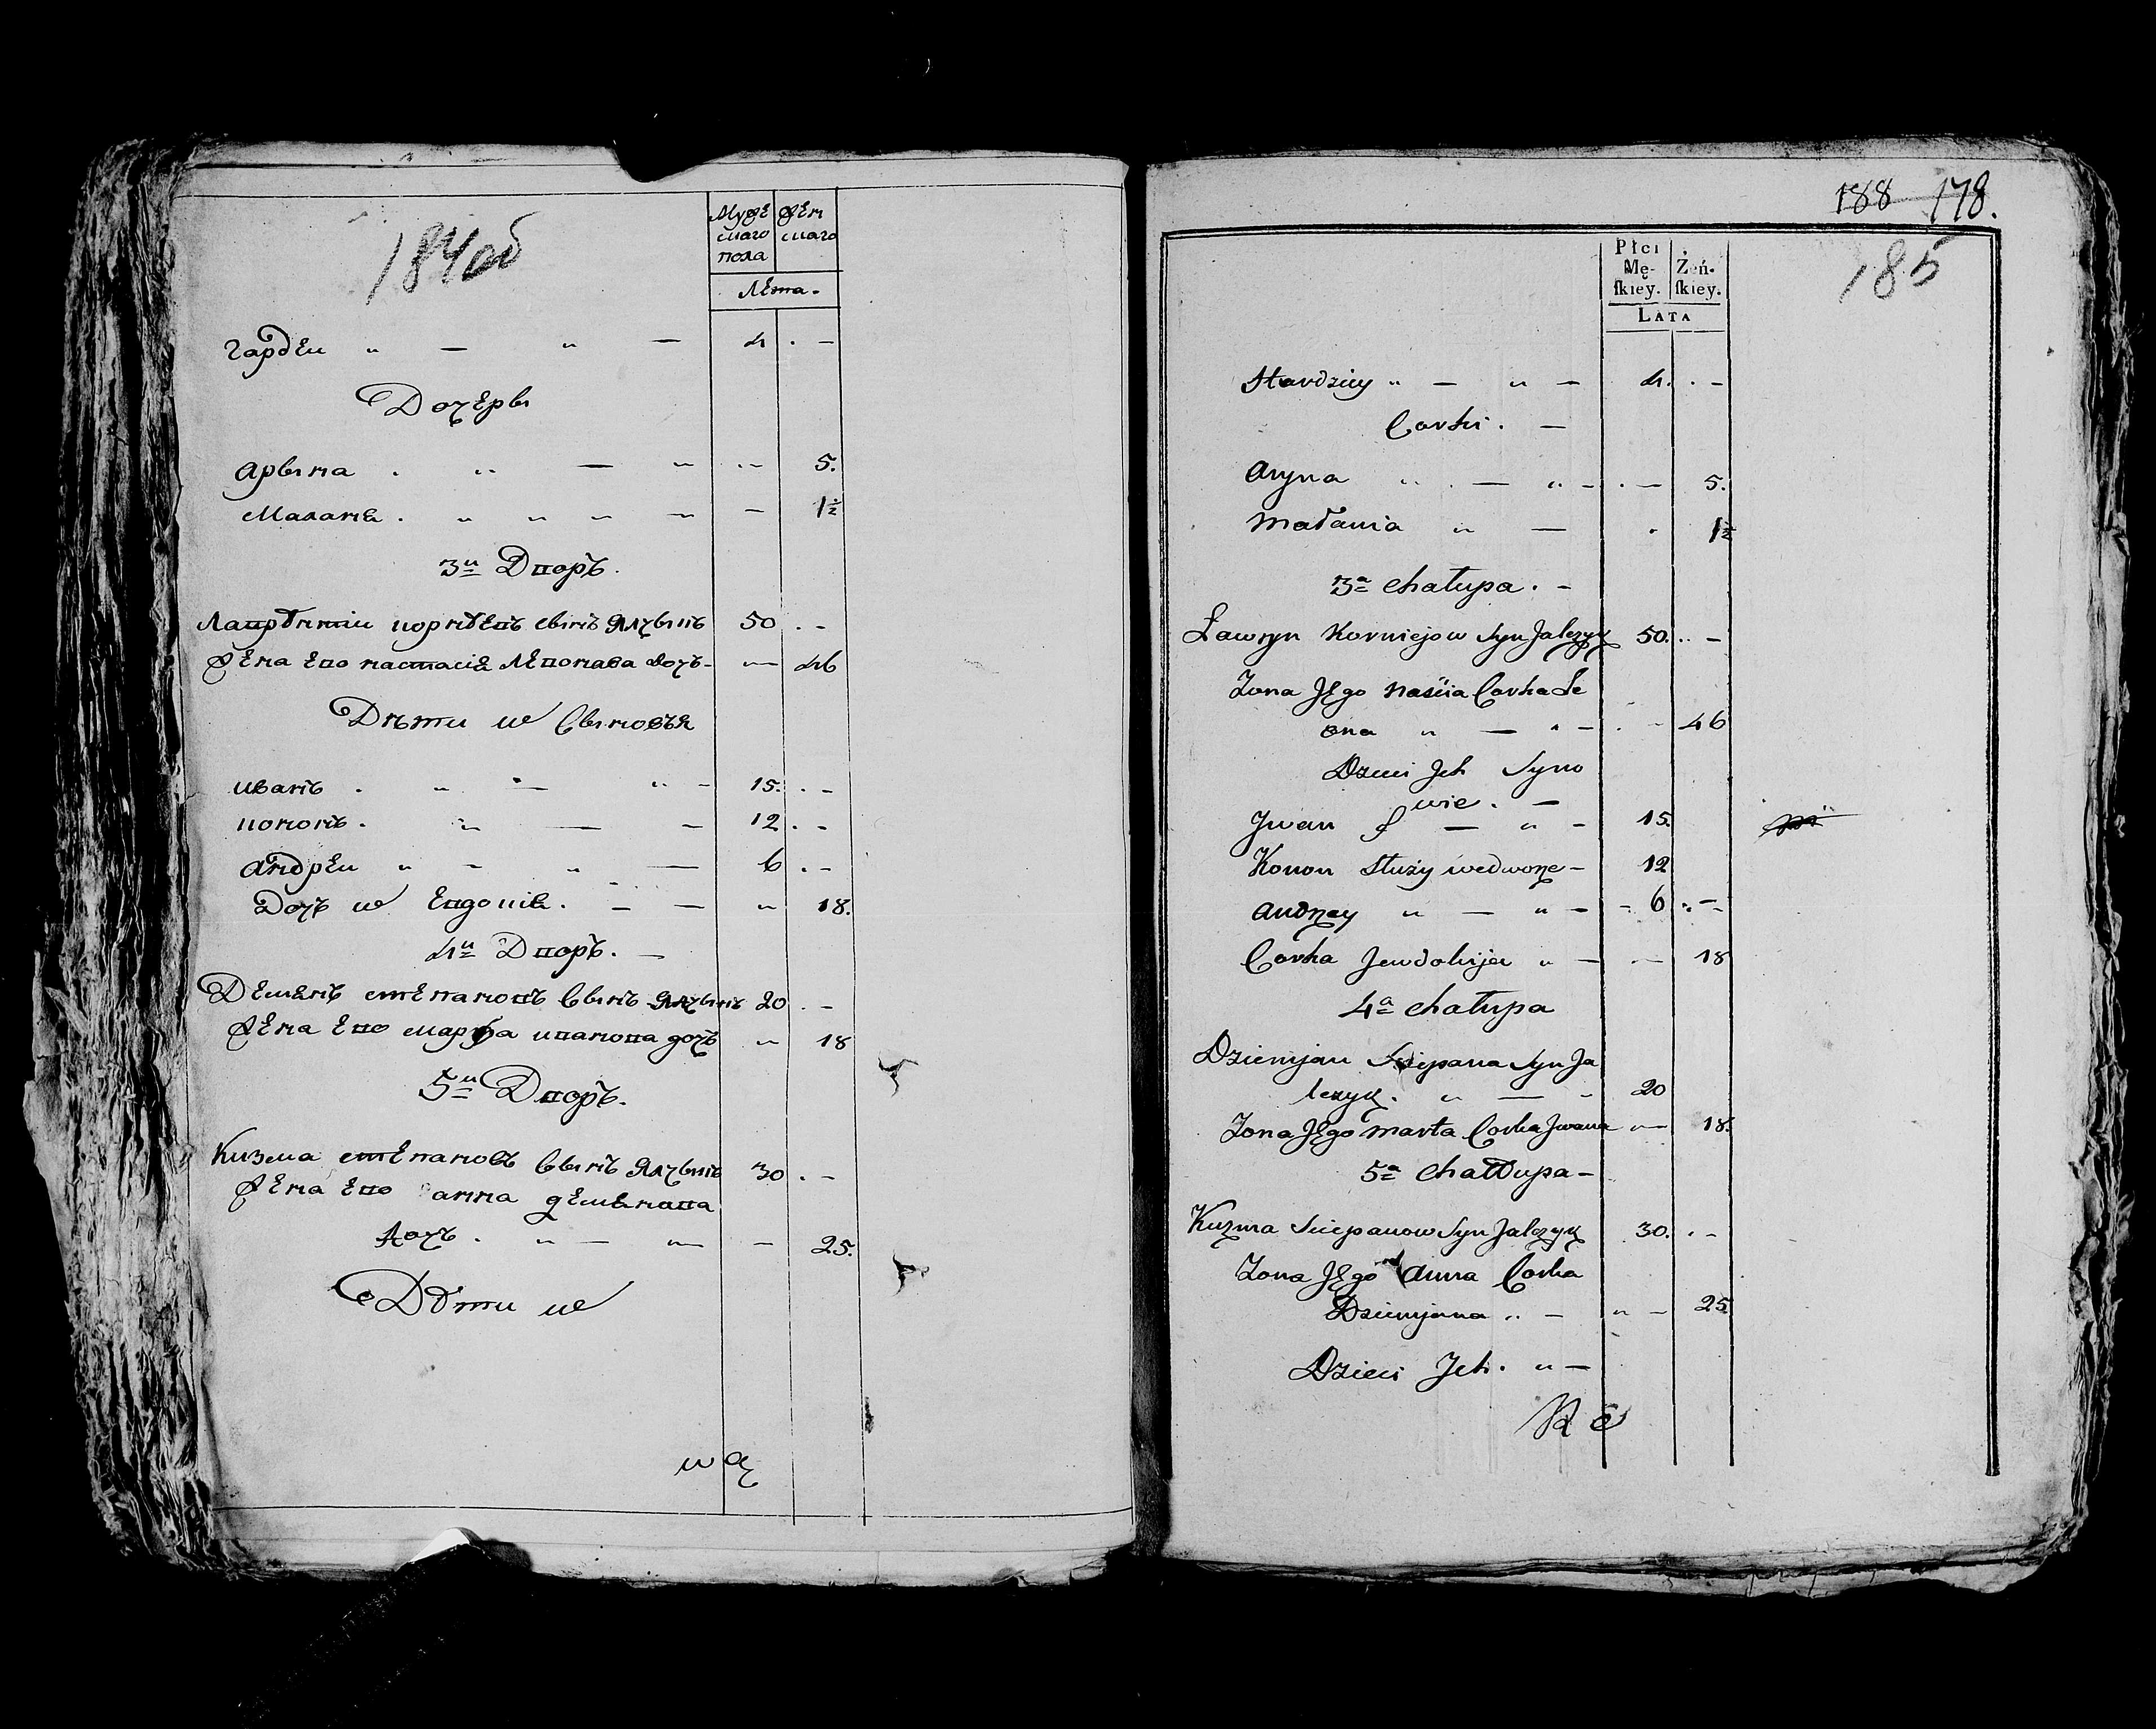 184об
Муже Жен
скаго скаго
пола
Лета.
гардеи " — " — 4 . —
Дочеры
арына . " — " " 5.
Маланя . " " " — — 1½
3й Дворъ.
50 . —
Жена его настасія — 46
Дѣти ихъ Сыновья
иванъ . " — " — 15. . —
кононъ . " — — 12 . —
андреи " — " — 6 . —
Дочъ ихъ Евдокия . — — " 18.
4й Дворъ. —
Демянъ степановъ Сынъ Ялчыкъ 20 . —
Жена его марфа иванова дочъ " 18
5й Дворъ.
Кизма степановъ Сынъ Ялчыкъ 30 . —
Жена его анна демянова
дочъ . " — " — 25.
Дѣти ихъ
188 178.
185
Płci
Mę- Żeń-
ſkiey. ſkiey.
LATA
Hardziey " — " — 4. . —
Corki . —
aryna " . — " - . — 5.
Małania " — . 1½
3a chałupa . -
Ławryn Korniejow Syn Jalczyk 50. . —
Zona Jego Naścia Corka Le
ona " — " - . - 46
Dzieci Jch Syno
wie . —
Jwan — " - 15.
Konon Służy wedworze - 12
andrzey " — " - - 6 . —
Corka Jewdokija " — — 18
4a chałupa
Dziemjan Sciepana Syn Ja
lczyk . " — - 20
Zona Jego Marta Corka Jwana " — 18.
5a chałłupa —
Kuzma Sciepanow Syn Jalczyk 30. . -
Zona Jego anna Corka
Dziemjana " — " — 25.
Dzieci Jch . " —